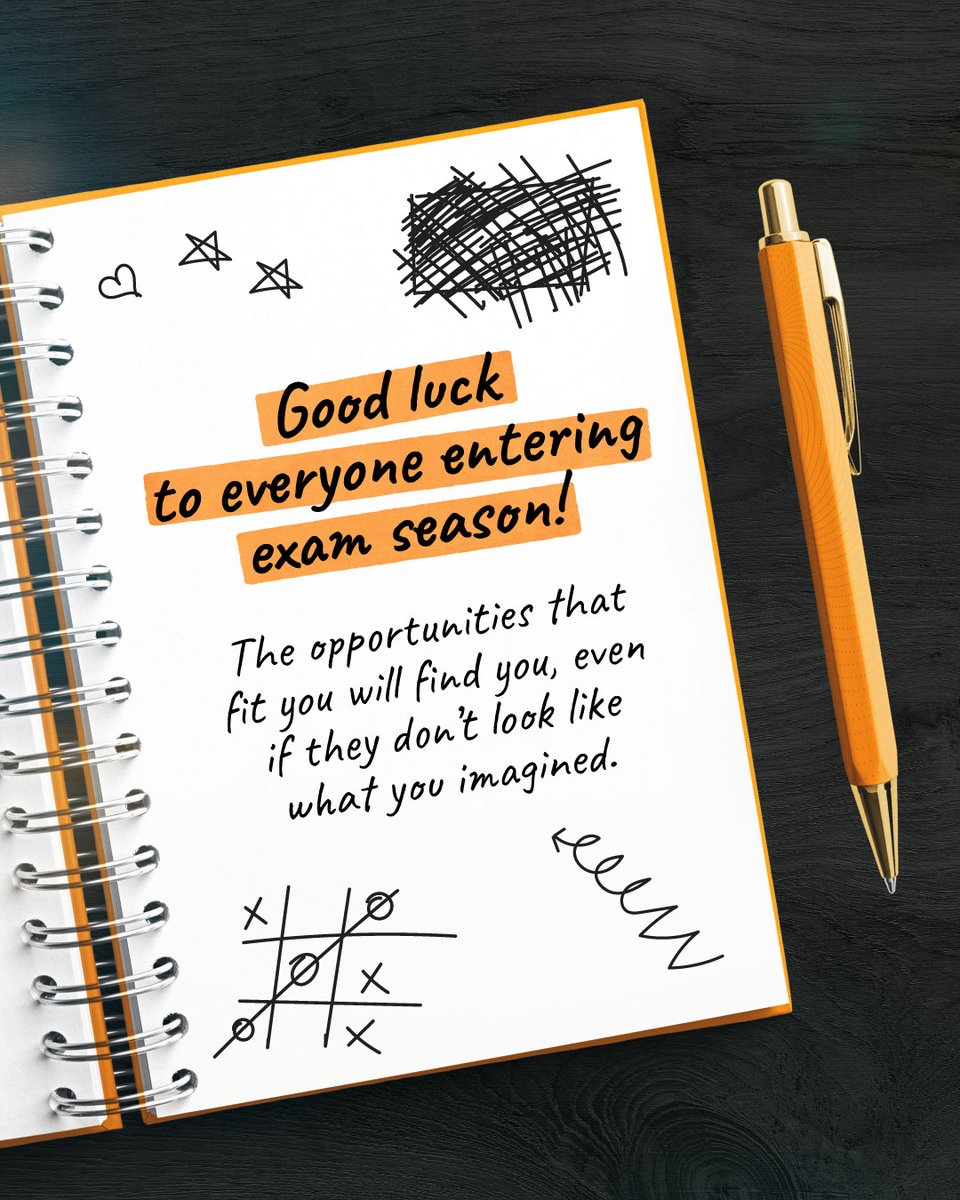 Good luck
to everyone entering
exam season!
The opportunities that
fit you will find you, even
if they don't look like
what you imagined.
X O
O X
O X